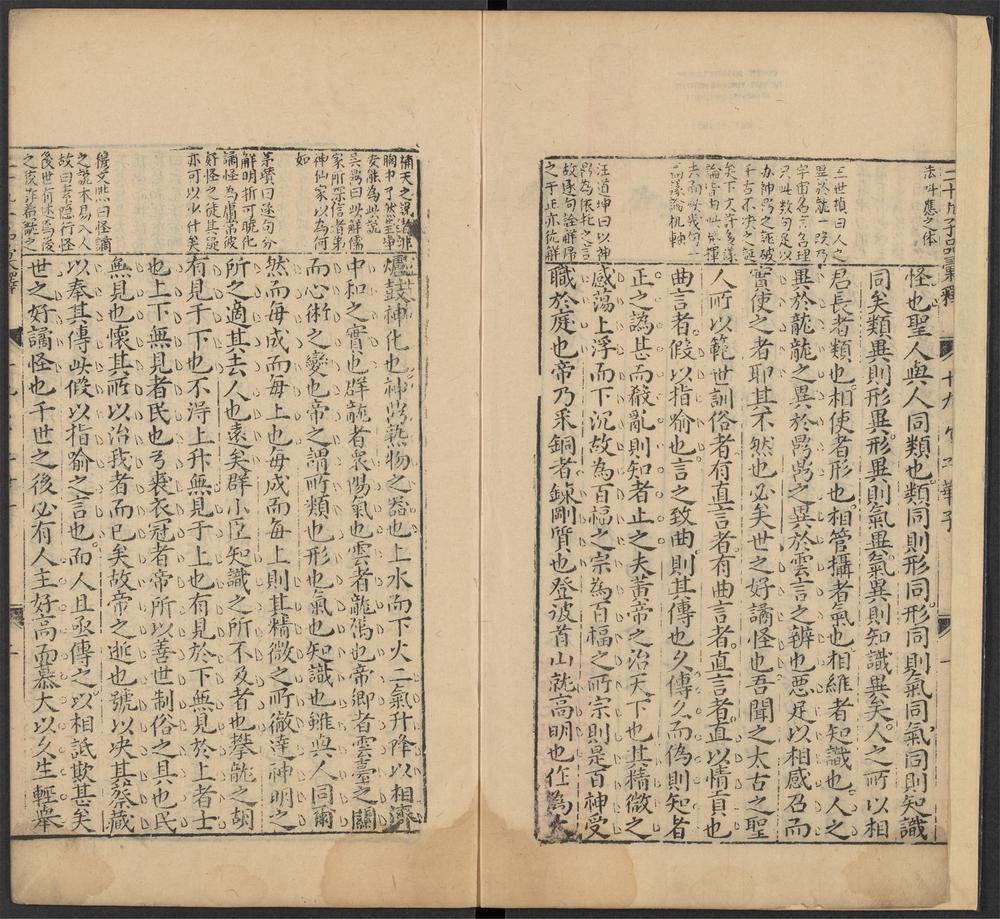 二十九子品彙釋評
十九卷 子華子
一
法叫應之体
三世禎曰人之
異於龍一段乃
宇宙名言名理
只叫数句足以
办神禹之誣破
千古不决之誕
矣下文許多議
論皆由此發揮
去而此幾句一
高議論机軸
汪道坤曰以神
禹為依托之言
故逐句詮解帰
之于正亦佐解
怪也聖人與人同類也類同則形同形同則氣同氣同則知識
同矣類異則形異形異則氣異氣異則知識異矣人之所以相
君長者類也相使者形也相管攝者氣也相維者知識也人之
異於龍龍之異於鼎鼎之異於雲言之辨也惡足以相感召而
實使之者耶其不然也必矣世之好譎怪也吾聞之太古之聖
人所以範世訓俗者有直言者有曲言者直言者直以情貢也
曲言者假以指喻也言之致曲則其傳也久傳久而偽則知者
正之譌甚而殽亂則知者止之夫黃帝之治天下也其精微之
感蕩上浮而下沉故為百福之宗為百福之所宗則是百神受
職於庭也帝乃采銅者鍊剛質也登波首山就高明也作為大
補天之說者非
胸中了然於坤
安能為此說
吳崙曰此解儒
家所深信者弟
神仙家以為何
如
茅瓚曰逐句分
解明折可曉化
譎怪為庸常破
好怪之徒其疑
亦可以少什矣
穆文熙曰怪譎
之說本易入人
故曰素隱行怪
後世有述焉後
之後許者觀之
爐鼓神化也神鼎熟物之器也上水而下火二氣升降以相濟
中和之實也群龍者衆陽氣也雲者龍屬也帝卿者雲臺之關
而心術之變也帝之謂所類也形也氣也知識也雖與人同爾
然而每成而每上也每成而每上則其精微之所徹達神明之
所之適其去人也遠矣群小臣知識之所不及者也攀龍之胡
有見于下也不淂上升無見于上也有見於下無見於上者士
也上下無見者民也弓裘衣冠者帝所以善世制俗之具也民
無見也懷其所以治我者而已矣故帝之逝也號以决其祭藏
以奉其傳此假以指喻之言也而人且亟傳之以相詆欺甚矣
世之好譎怪也千世之後必有人主好高而慕大以久生輕舉